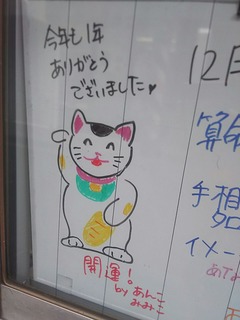 今年も1年
ありがとう
ございました♥
開運!
by あんこ
みみこ
12月
算命
手相
タロ
イメー